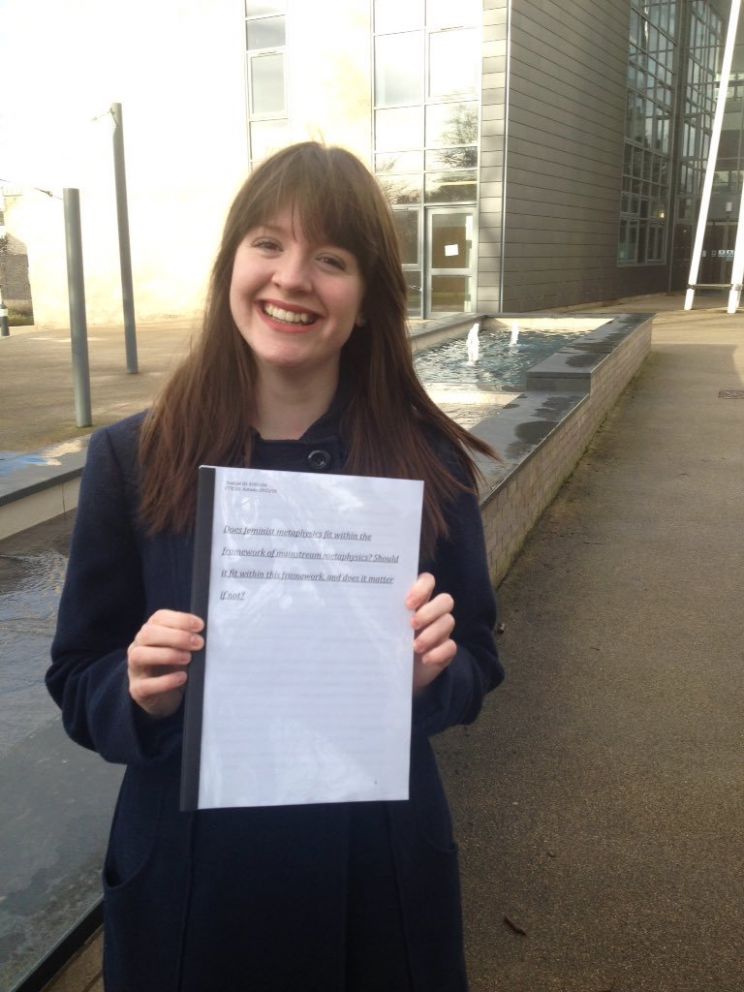 Does feminist metaphysics fit within the
framework of mainstream metaphysics? Should
it fit within this framework, and does it matter
if not?